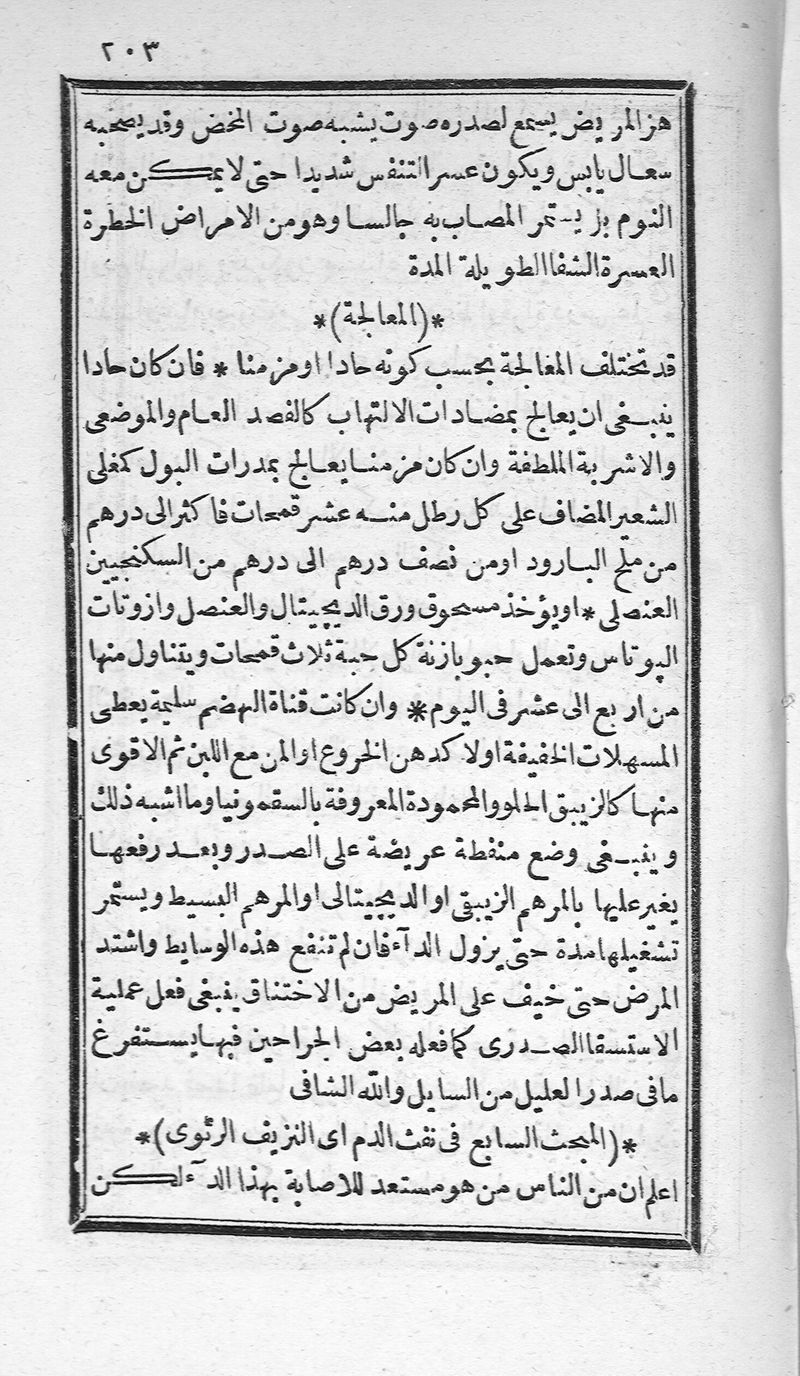 ٢٠٣
هز المريض يسمع لصدره صوت يشبه صوت المخض وقد يصحبه
سعال يابس ويكون عسر التنفس شديدا حتى لا يمكن معه
النوم بل يستمر المصاب به جالسا وهو من الامراض الخطرة
العسرة الشفا الطويلة المدة
*(المعالجة)*
قد تختلف المعالجة بحسب كونه حادا او مزمنا * فان كان حادا
ينبغى ان يعالج بمضادات الالتهاب كالفصد العام والموضعى
والاشربة الملطفة وان كان مزمنا يعالج بمدرات البول كمغلى
الشعير المضاف على كل رطل منه عشر قمحات فاكثر الى درهم
من ملح البارود او من نصف درهم الى درهم من السكنجبين
العنصلى * او يؤخذ مسحوق ورق الديجيتال والعنصل وازوتات
البوتاس وتعمل حبوبا زنة كل حبة ثلاث قمحات ويتناول منها
من اربع الى عشر فى اليوم * وان كانت قناة الهضم سليمة يعطى
المسهلات الخفيفة اولا كدهن الخروع او المن مع اللبن ثم الاقوى
منها كالزيبق الحلو والمحمودة المعروفة بالسقمونيا وما اشبه ذلك
وينبغى وضع منفطة عريضة على الصدر وبعد رفعها
يغير عليها بالمرهم الزيبقى او الديجيتالى او المرهم البسيط ويستمر
تشغيلها مدة حتى يزول الدآء فان لم تنفع هذه الوسايط واشتد
المرض حتى خيف على المريض من الاختناق ينبغى فعل عملية
الاستسقا الصدرى كما فعله بعض الجراحين فبها يستفرغ
ما فى صدر العليل من السايل والله الشافى
*(المبحث السابع فى نفث الدم اى النزيف الرئوى)*
اعلم ان من الناس من هو مستعد للاصابة بهذا الدآء لكن